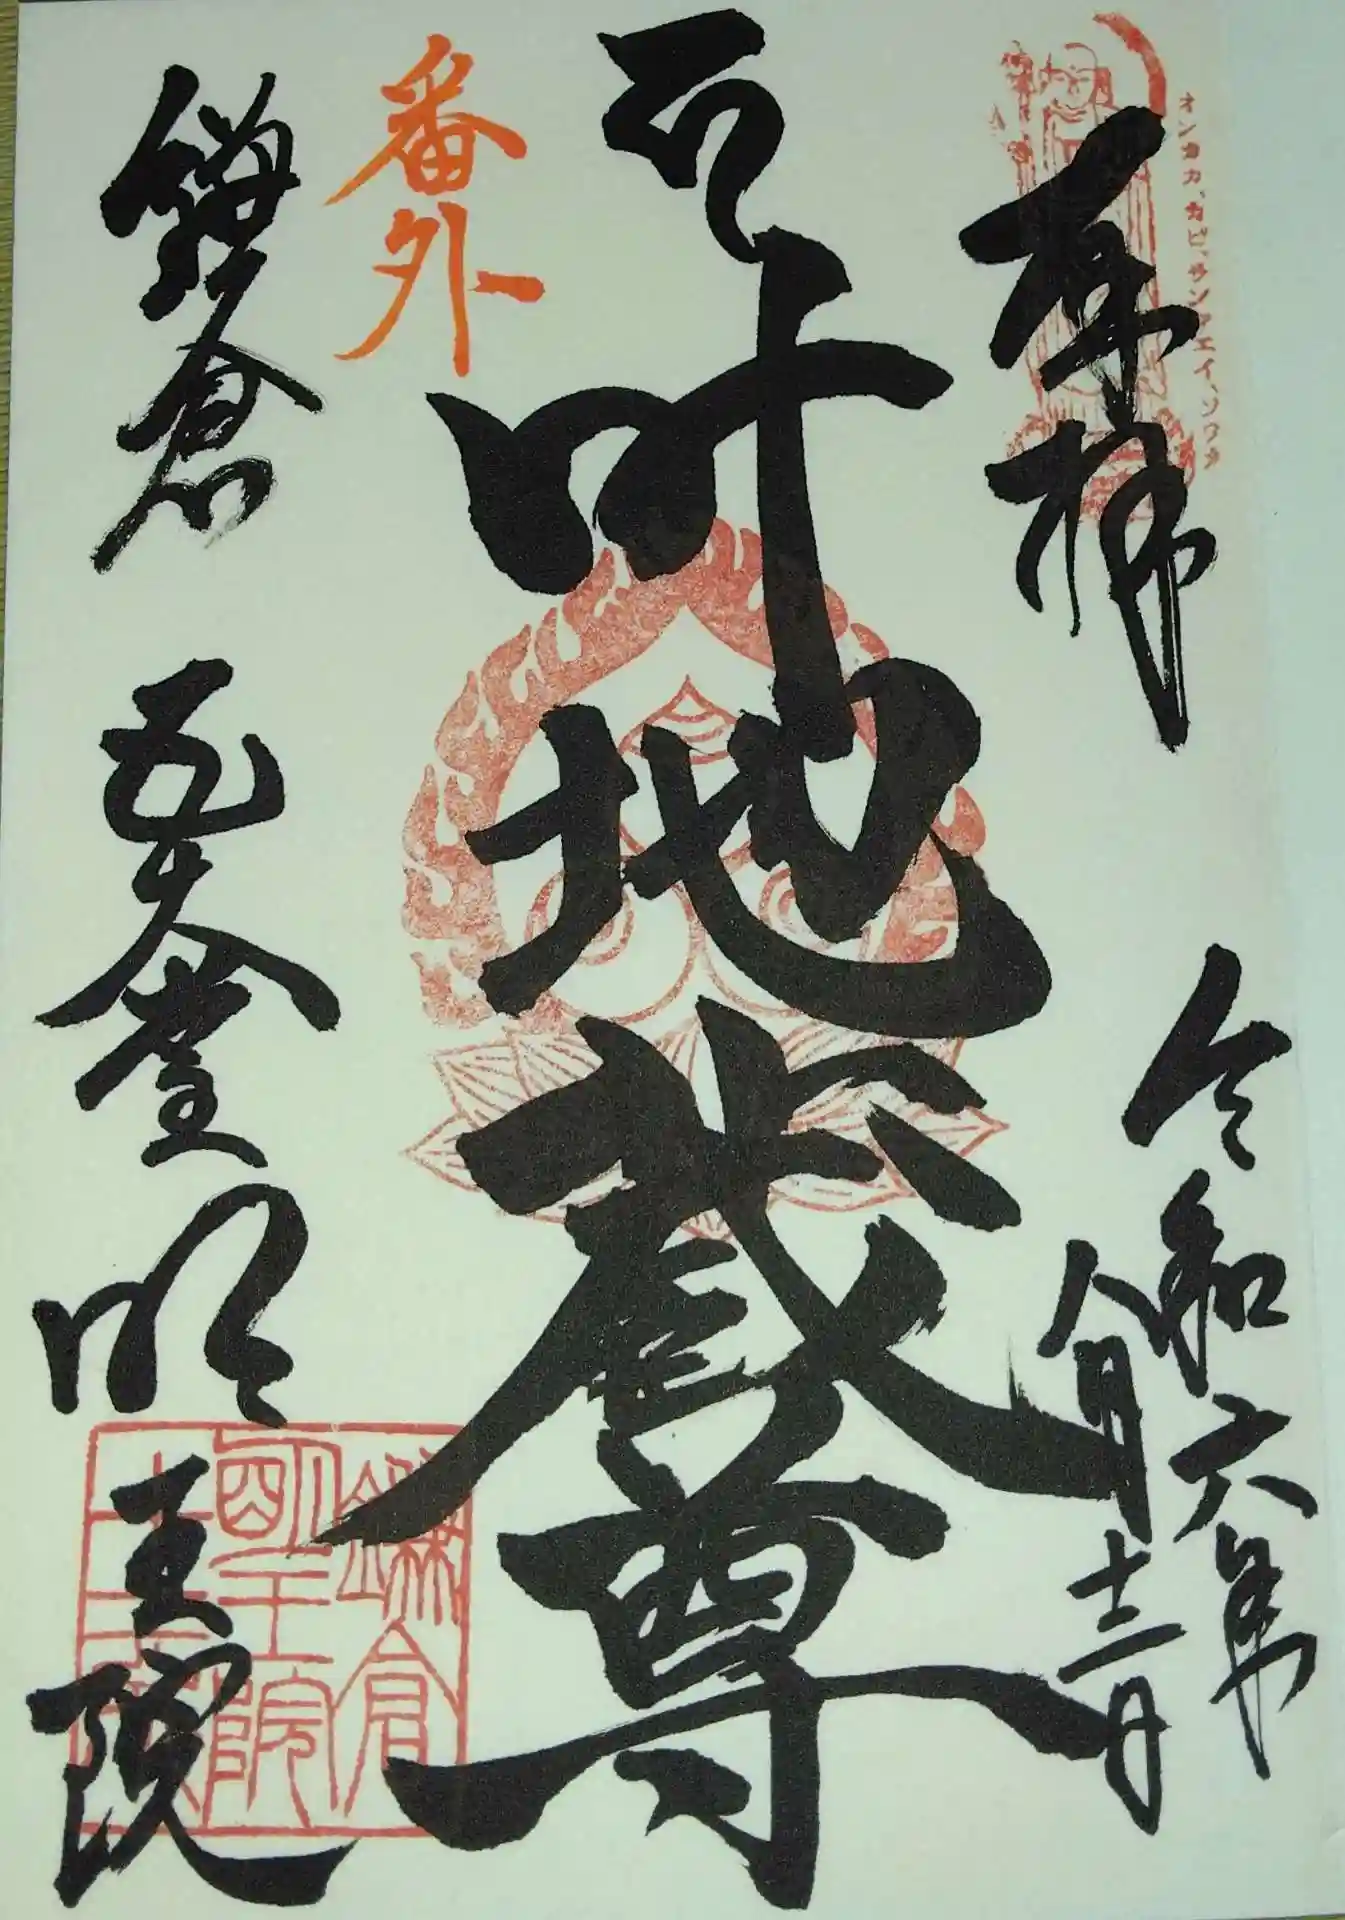 オンカカ、カビ、サンマエイ、ソワカ
奉拝
令和六年
八月十三日
叶地蔵尊
番外
鎌倉 五大堂 明王院
鎌倉
明王院